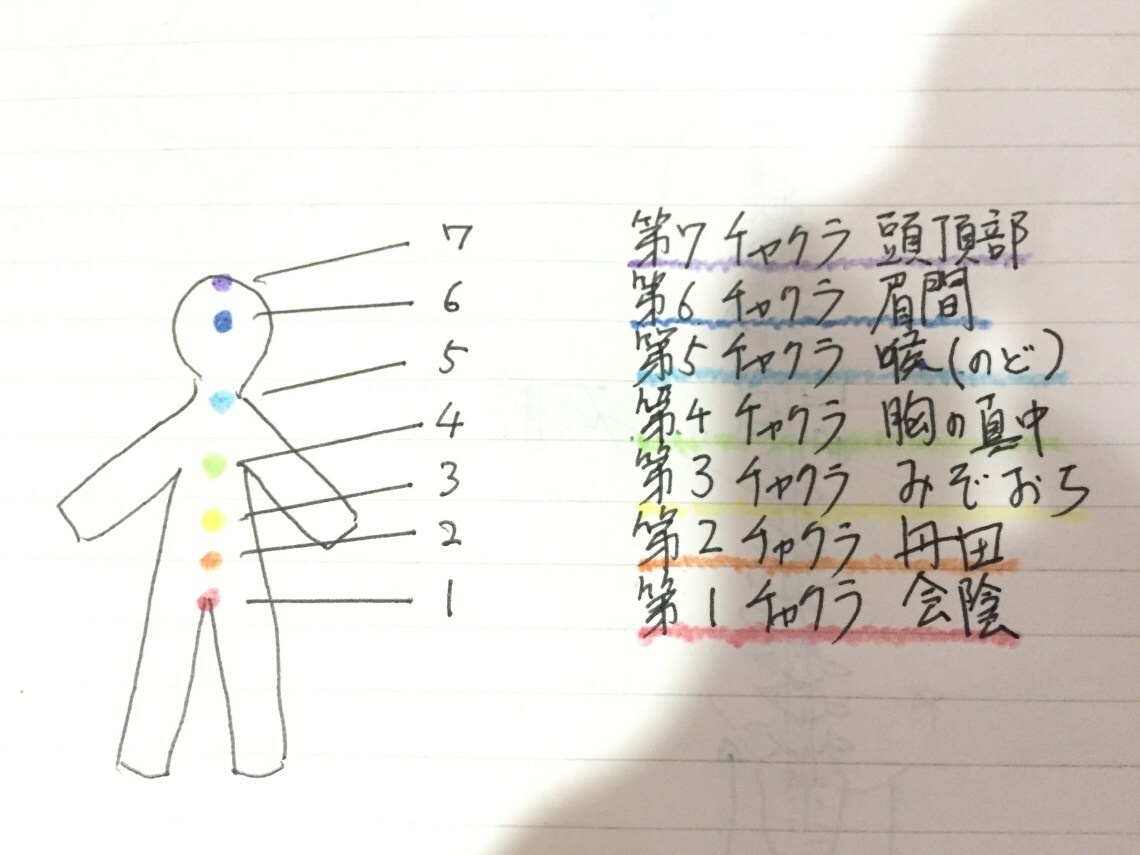 7
6
5
4
3
2
1
第7チャクラ 頭頂部
第6チャクラ 眉間
第5チャクラ 喉(のど)
第4チャクラ 胸の真中
第3チャクラ みぞおち
第2チャクラ 丹田
第1チャクラ 会陰